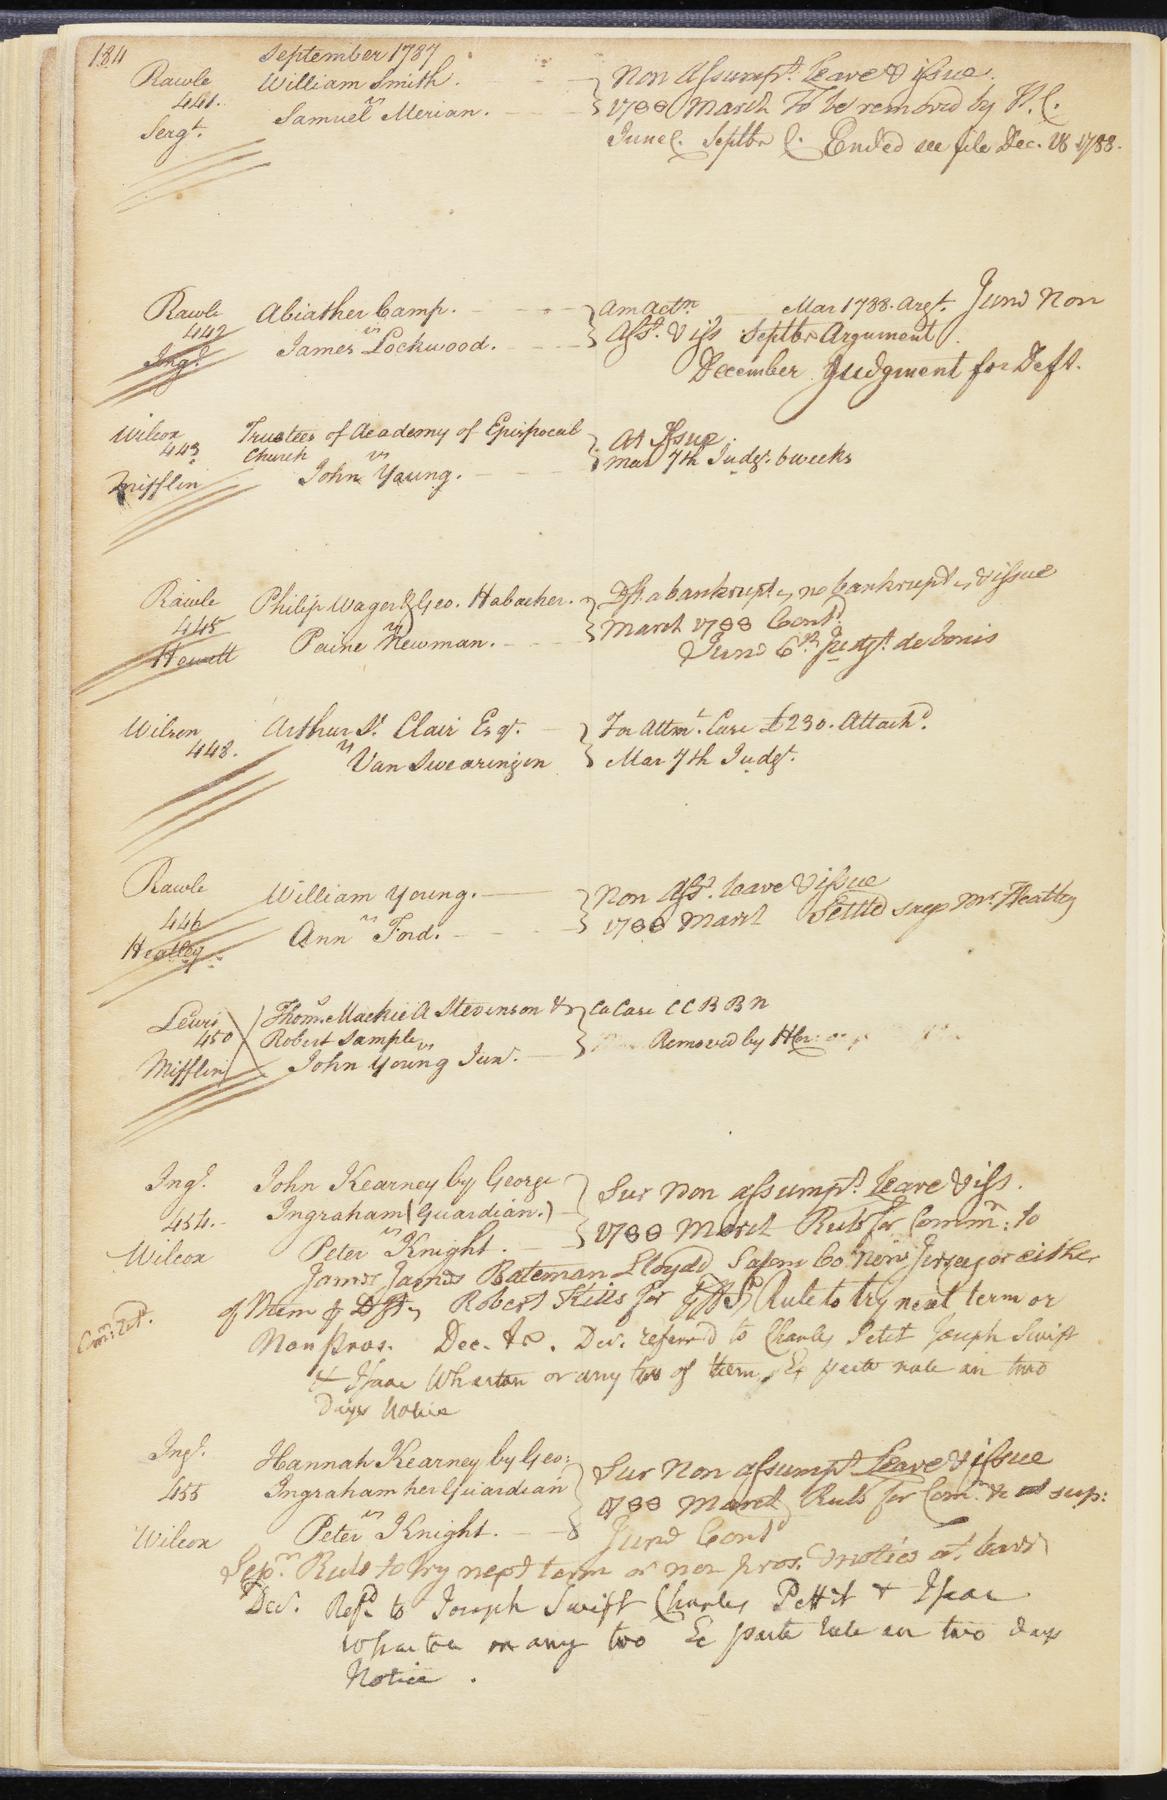 184 September 1787
Rawle William Smith. Non Assumpt. Leave & issue.
441. vs 1788 March To be removed by P. C.
Sergt. Samuel Merian.
June C. Septbr C. Ended see file Dec. 28 1788.
Rawle Abiather Camp. Am Actn. Mar 1788. Argt. June Non
442 vs Asst. & iss Septbr Argument
Ing. James Lockwood.
December Judgment for Deft.
Wilcox Trustees of Academy of Epispocal At Issue.
443 Church vs Mar 7th Judgt. 6 weeks
Mifflin John Young.
Rawle Philip Wager & Geo. Habacker. Dft. a bankrupt, no bankrupt, & issue
445 vs March 1788 Contd.
Howell Paine Newman.
June 6th Judgt. de bonis
Wilson Arthur St. Clair Esqr. For Attmt. Case £230. Attachd.
448. vs Van Swearingin Mar 7th Judgt.
Rawle William Young. Non Asst. leave & issue
446 vs 1788 March Settled says Mr. Heatley
Heatley Ann Ford.
Lewis Thoms. Mackie A Stevenson & Ca Case C C B B n
450 Robert Sample vs Removed by
Mifflin John Young Junr.
Ing. John Kearney by George Sur Non assumpt. Leave & iss.
454. Ingraham (Guardian.) 1788 March Rule for Commn: to
Wilcox vs Peter Knight.
James James Bateman Lloyd Salem Co. New Jersey or either
of them Robert Kitts for Rule to try next term or
Non pros. Dec. Dec. referrd to Charles Petit Joseph Swift
& Isaac Wharton or any two of them, Ex parte rule on two
Days Notice
Ing. Hannah Kearney by Geo: Sur Non assumpt Leave & issue
455 Ingraham her Guardian 1788 March Rule for Comn. &c sup:
Wilcox vs Peter Knight. June Contd
Sepr. Rule to try next term or non pros. & notice at bar
Dec. Refd to Joseph Swift Charles Pettit & Isaac
Wharton or any two Ex parte rule on two days
Notice.